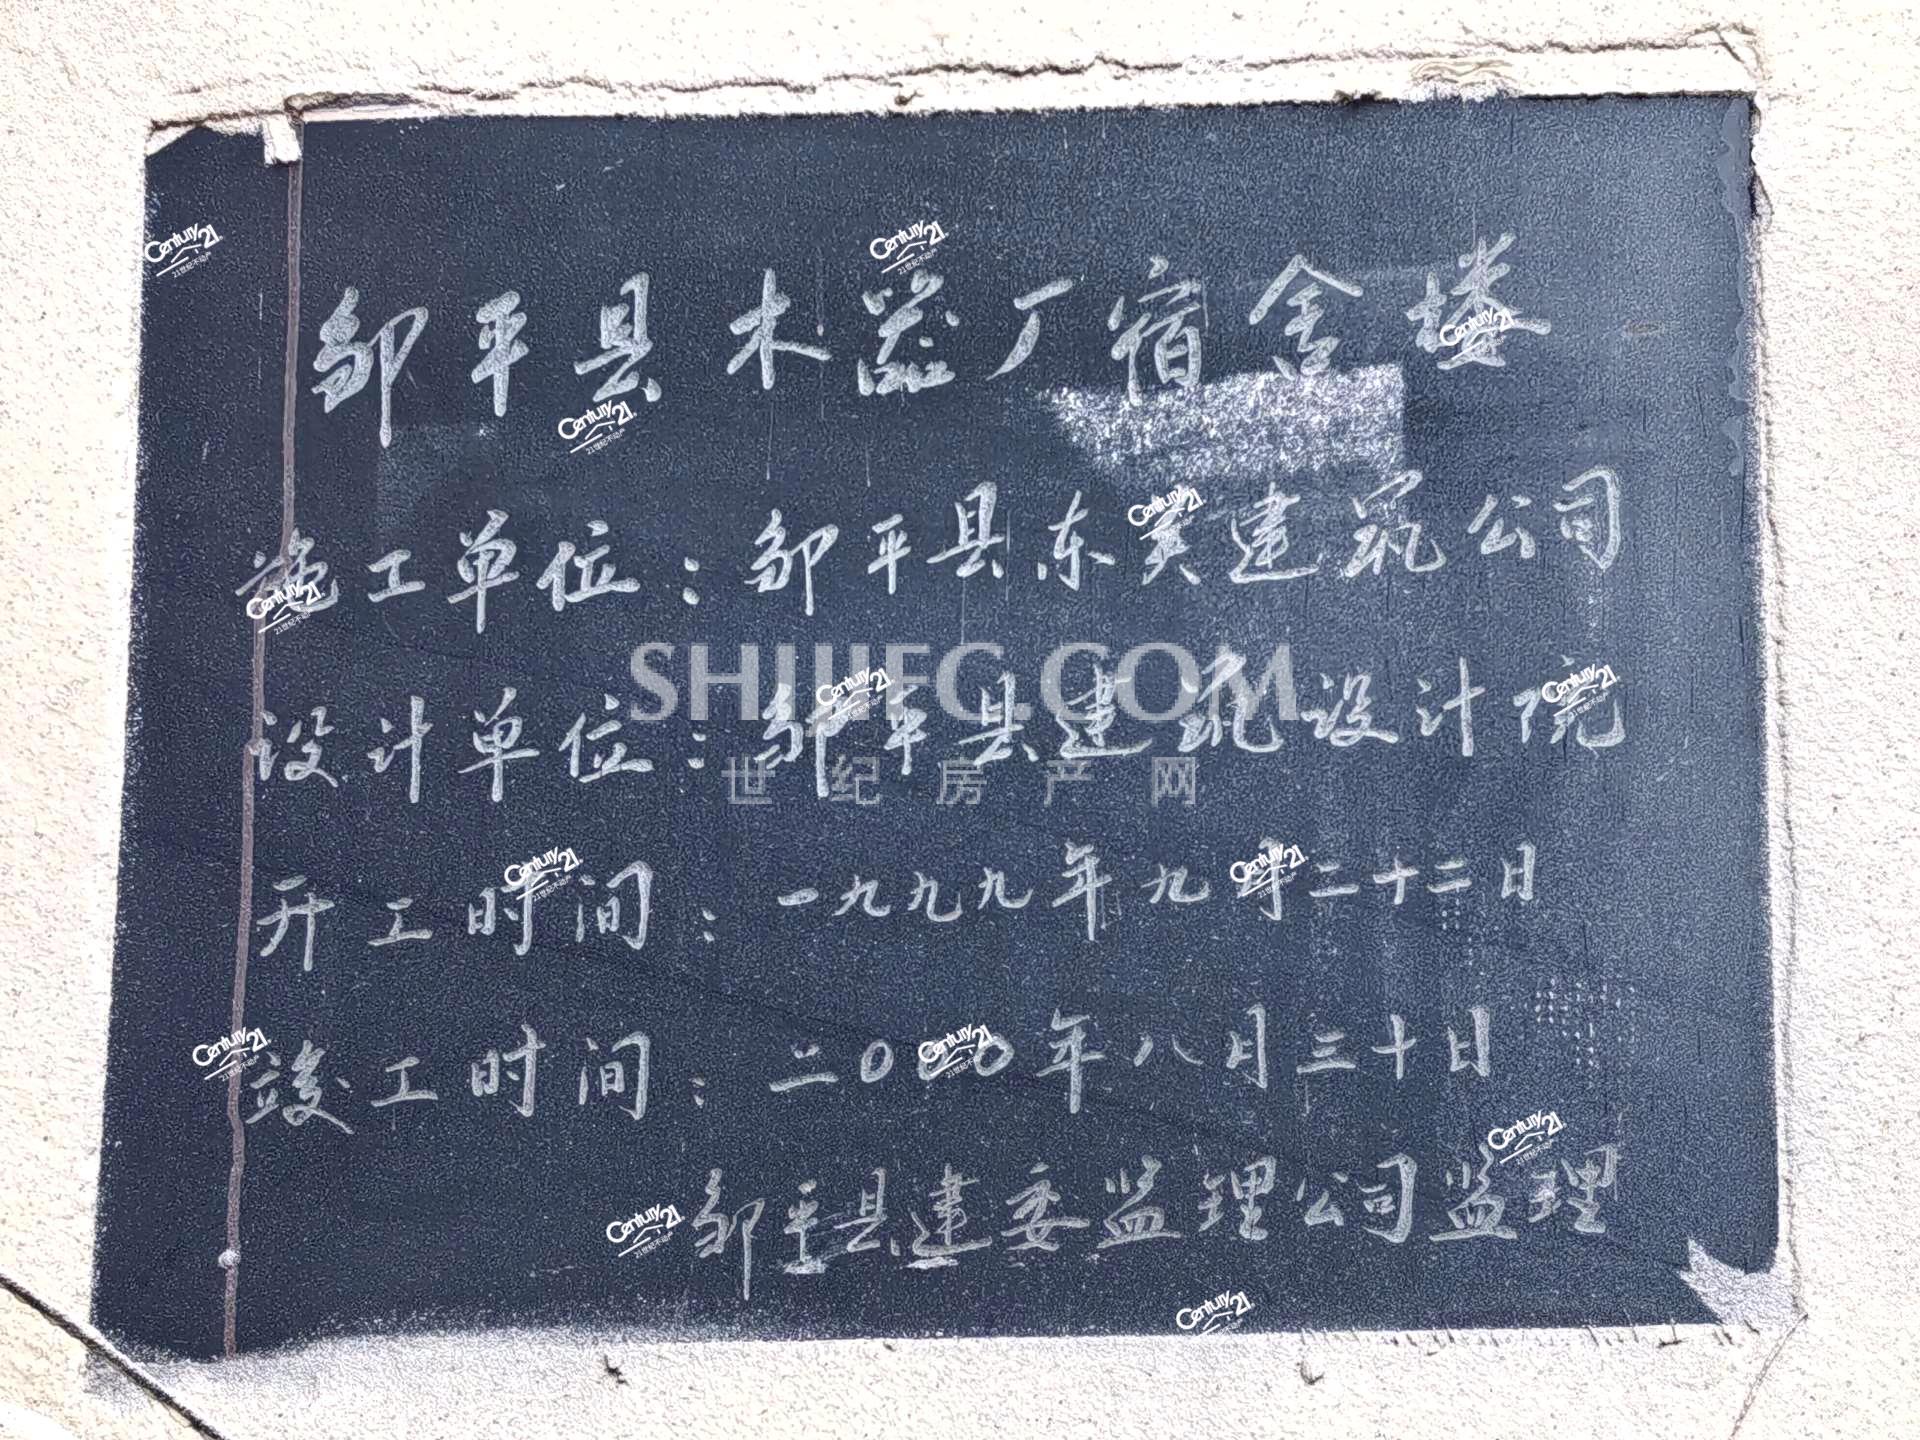 邹平县木器厂宿舍楼
施工单位：邹平县东关建筑公司
设计单位：邹平县建筑设计院
开工时间：一九九九年九月二十二日
竣工时间：二000年八月三十日
邹平县建委监理公司监理
SHIJIFC.COM
世纪房产网
Century 21
21世纪不动产